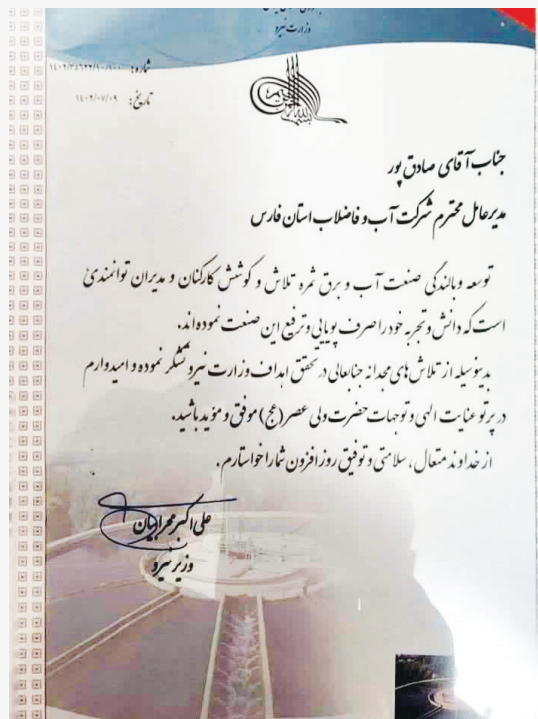 وزارت نیرو
شماره: ۱۴۰۲/۳۵۶۲۲/۱۰/۱۰۰
تاریخ: ۱۴۰۲/۰۷/۰۹
جناب آقای صادق پور
مدیرعامل محترم شرکت آب و فاضلاب استان فارس
توسعه و بالندگی صنعت آب و برق ثمره تلاش و کوشش کارکنان و مدیران توانمندی
است که دانش و تجربه خود را صرف پویایی و ترفیع این صنعت نموده‌اند.
بدینوسیله از تلاش‌های مجدانه جنابعالی در تحقق اهداف وزارت نیرو تشکر نموده و امیدوارم
در پرتو عنایت الهی و توجهات حضرت ولی عصر (عج) موفق و مؤید باشید.
از خداوند متعال، سلامتی و توفیق روزافزون شما را خواستارم.
علی اکبر محرابیان
وزیر نیرو